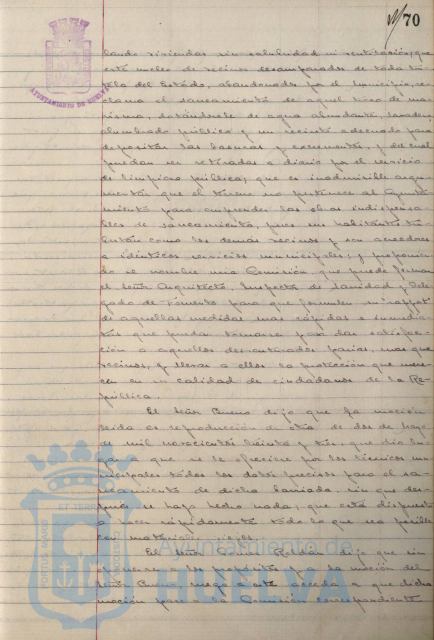 70
AYUNTAMIENTO DE HUELVA
viviendas sin salubridad ni ventilación, que
este núcleo de vecinos desamparados de toda tu-
tela del Estado, abandonados por el municipio, re-
clama el saneamiento de aquel trozo de ma-
risma, dotándosele de agua abundante, lavaderos,
alumbrado público y un recinto adecuado para
depositar las basuras y excrementos, y del cual
puedan ser retirados a diario por el servicio
de limpieza pública; que es inadmisible argu-
mentar que el terreno no pertenece al Ayunta-
miento para emprender las obras indispensa-
bles de saneamiento, pues sus habitantes tri-
butan como los demás vecinos y son acreedores
a idénticos servicios municipales; y proponien-
do se nombre una Comisión, que puede formar
el Señor Arquitecto, Inspector de Sanidad y Dele-
gado de Fomento para que formulen
de aquellas medidas más rápidas e inmedia-
tas que puedan tomarse para dar satisfac-
ción a aquellos desventurados parias, más que
vecinos, y llevar a ellos la protección que mere-
cen en su calidad de ciudadanos de la Re-
pública.
El Señor Bueno dijo que la moción
leida es reproducción de otra de dos de
de mil novecientos treinta y tres, que dió lu-
gar a que se le ofreciese por los técnicos mu-
nicipales todos los datos precisos para el sa-
neamiento de dicha barriada, sin que des-
pués se haya hecho nada; que está dispuesto
a hacer rápidamente todo lo que sea posible
con materiales
El Señor Roldán dijo que sin
a los propósitos y a la moción del
Señor Bueno, ruega a este acceda a que dicha
moción pase a la Comisión correspondiente
PORTUS MARIS
ET TERRAE
Ayuntamiento de
HUELVA